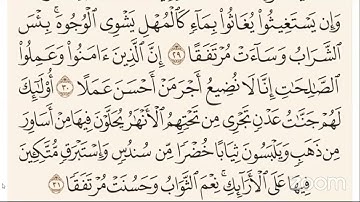 وَإِن يَسْتَغِيثُوا۟ يُغَاثُوا۟ بِمَآءٍ كَٱلْمُهْلِ يَشْوِى ٱلْوُجُوهَ ۚ بِئْسَ
ٱلشَّرَابُ وَسَآءَتْ مُرْتَفَقًا ٢٩ إِنَّ ٱلَّذِينَ ءَامَنُوا۟ وَعَمِلُوا۟
ٱلصَّـٰلِحَـٰتِ إِنَّا لَا نُضِيعُ أَجْرَ مَنْ أَحْسَنَ عَمَلًا ٣٠ أُو۟لَـٰٓئِكَ
لَهُمْ جَنَّـٰتُ عَدْنٍ تَجْرِى مِن تَحْتِهِمُ ٱلْأَنْهَـٰرُ يُحَلَّوْنَ فِيهَا مِنْ أَسَاوِرَ
مِن ذَهَبٍ وَيَلْبَسُونَ ثِيَابًا خُضْرًا مِّن سُندُسٍ وَإِسْتَبْرَقٍ مُّتَّكِـِٔينَ
فِيهَا عَلَى ٱلْأَرَآئِكِ ۚ نِعْمَ ٱلثَّوَابُ وَحَسُنَتْ مُرْتَفَقًا ٣١